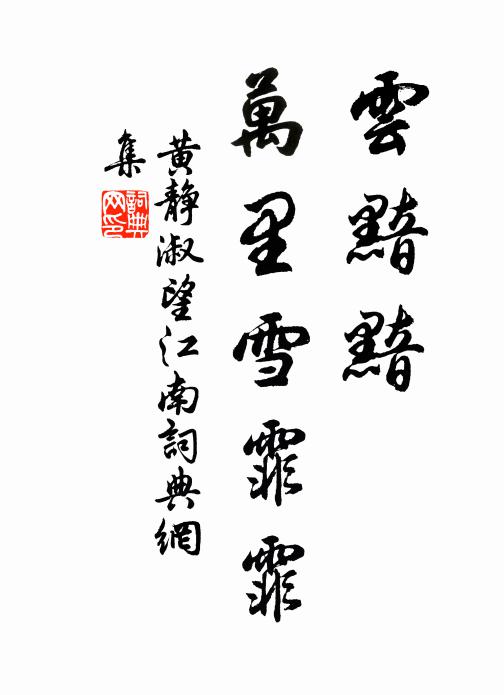 雲黯黯
萬里雪霏霏
黄静淑望江南詞典網
集
詞典
网印